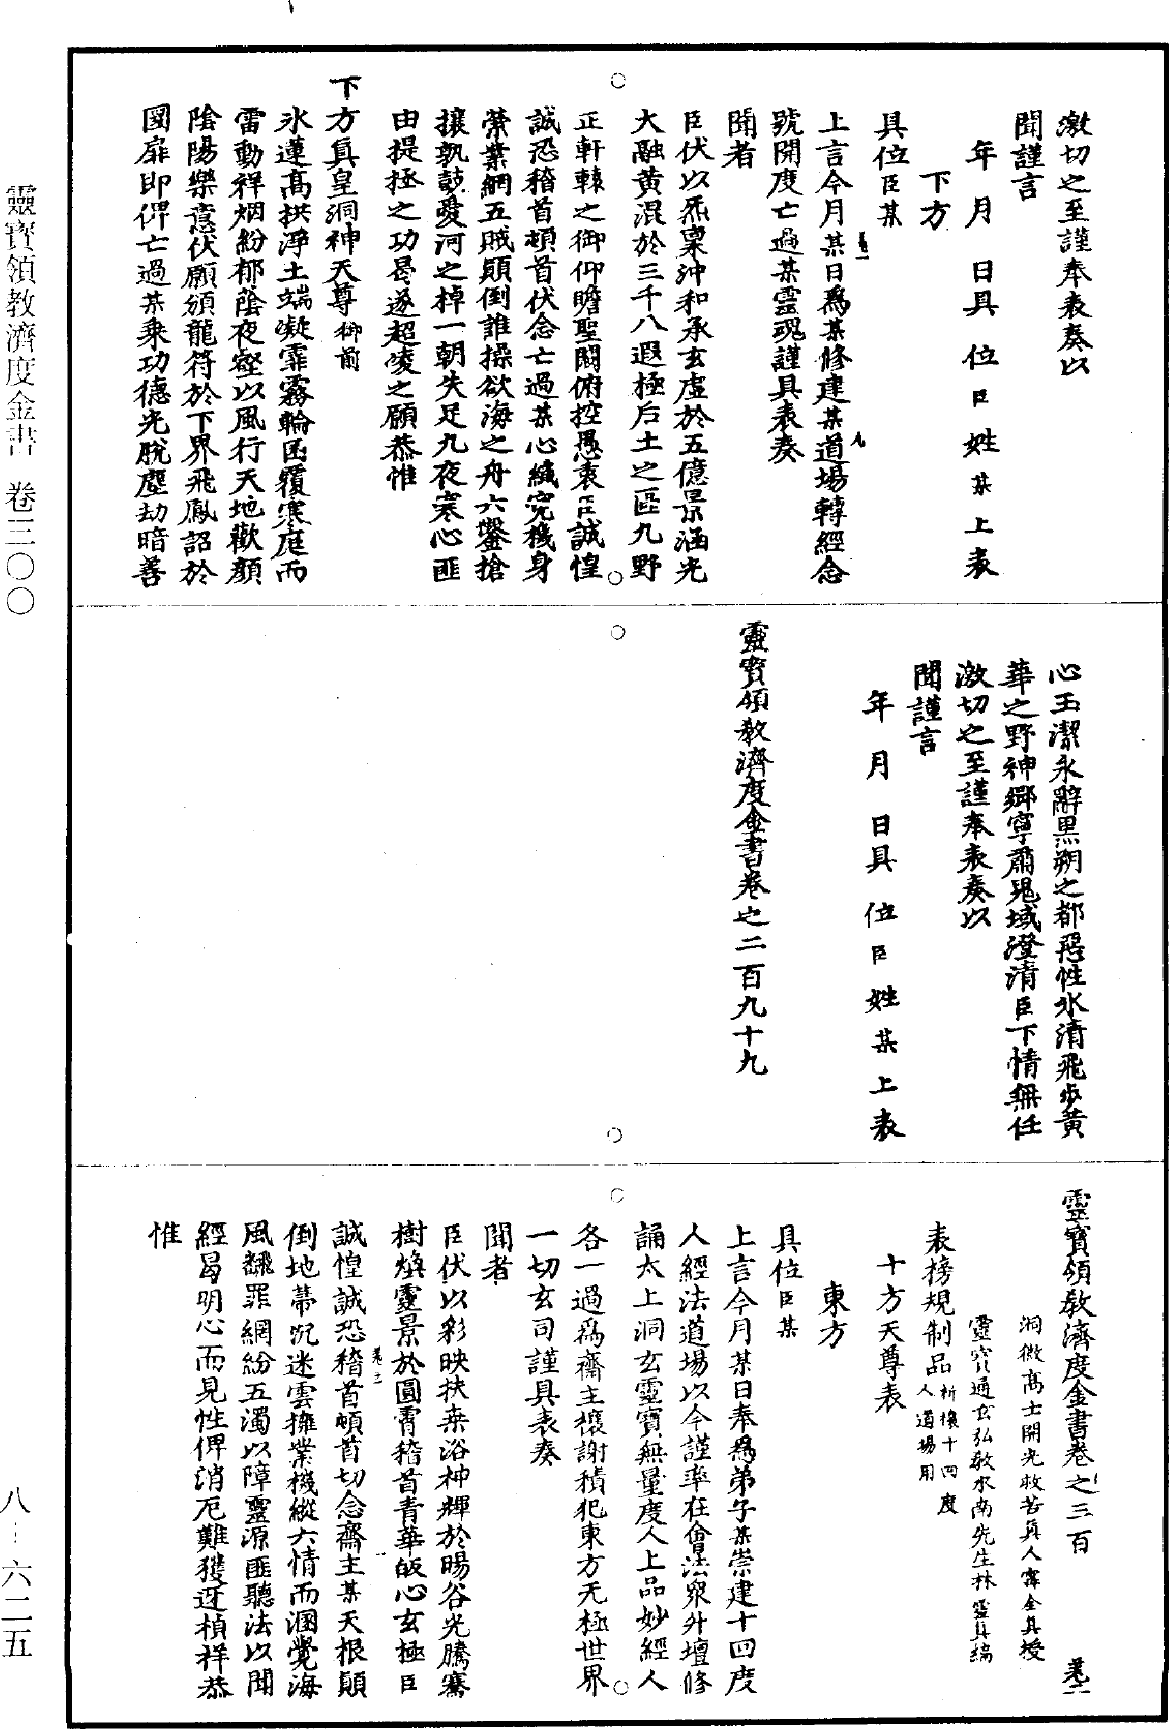 激切之至謹奉表奏以
聞謹言
年 月 日具 位臣 姓 某 上 表
下方
具位臣某
上言今月某日爲某修建某道場轉經念
號開度亡過某靈魂謹具表奏
聞者
臣伏以炁稟沖和承玄虛於五億景涵光
大融黄混於三千八遐極后土之區九野
正軒轅之御仰瞻聖闕俯控愚衷臣誠惶
誠恐稽首頓首伏念亡過某心織宄機身
縈業網五賊顛倒誰操欲海之舟六鑿搶
攘孰鼓愛河之棹一朝失足九夜寒心匪
由提拯之功曷遂超凌之願恭惟
下方真皇洞神天尊御前
氷蓮高拱浄土端凝霏霧輪函覆寒庭而
雷動祥烟紛郁蔭夜壑以風行天地歡顏
陰陽樂意伏願頒龍符於下界飛鳳詔於
圜扉即俾亡過某乘功德光脫塵劫暗善
心玉潔永辭黒朔之都惡性氷清飛步黄
華之野神鄉寧肅鬼域澄清臣下情無任
激切之至謹奉表奏以
聞謹言
年 月 日具 位臣 姓 某 上 表
靈寳領教濟度金書卷之二百九十九
靈寳領教濟度金書卷之三百
洞微高士開光救苦真人寗全真授
靈寳通玄弘教水南先生林靈真編
表榜規制品祈禳十回度人道場用
十方天尊表
東方
具位臣某
上言今月某日奉爲弟子某崇建十回度
人經法道場以今謹率在會法衆升壇修
誦太上洞玄靈寳無量度人上品妙經人
各一過爲齋主禳謝積犯東方无極世界
一切玄司謹具表奏
聞者
臣伏以彩映扶桒浴神輝於暘谷光騰騫
樹煥靈景於圓霄稽首青華皈心玄極臣
誠惶誠恐稽首頓首切念齋主某天根顛
倒地蔕沉迷雲擁業機縱六情而溷覺海
風飜罪網紛五濁以障靈源匪聽法以聞
經曷明心而見性俾消厄難獲迓楨祥恭
惟
靈寳領教濟度金書 卷三〇〇
八—六二五